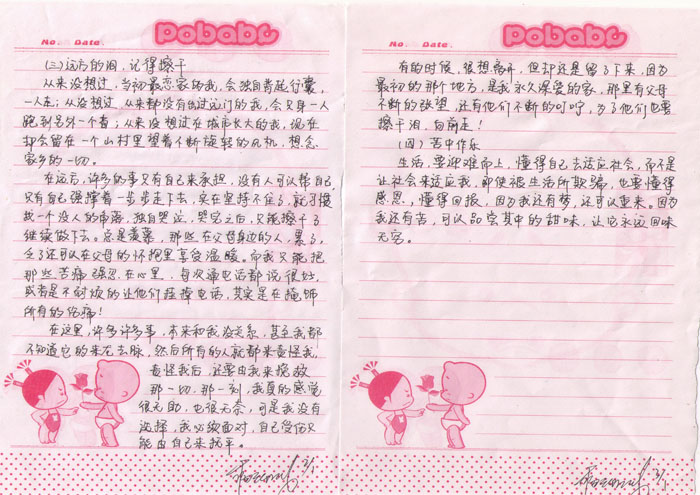 pobaby
No. Date.
(三)远方的泪，记得擦干
从来没想过，当初最恋家的我，会独自背起行囊，
一人走；从没想过，从来都没有出过远门的我，会只身一人
跑到另外一个省；从来没想过在城市长大的我，现在
却会留在一个山村里望着不断旋转的风机，想念
家乡的一切。
在远方，许多的事只有自己来承担，没有人可以帮自己，
只有自己强撑着一步步走下去，实在坚持不住了，就只模
找一个没人的角落，独自哭泣，哭完之后，又能擦干了
继续做下去。总是羡慕，那些在父母身边的人，累了，
乏了还可以在父母的怀抱里享受温暖。而我只能把
那些苦痛强忍在心里，每次通电话都说很好，
或者是不耐烦的让他们挂掉电话，其实是在掩饰
所有的伤痛！
在这里，许多许多事，本来和我没关系，甚至我都
不知道它的来龙去脉，然后所有的人就都来责怪我，
责怪我后，还要由我来挽救
那一切，那一刻，我真的感觉
很无助，也很无奈，可是我没有
选择，我必须面对，自己受伤只
能由自己来抚平。
2/1
pobaby
No. Date.
有的时候，很想离开，但却还是留了下来，因为
最初的那个地方，是我永久深爱的家，那里有父母
不断的张望，还有他们不断的叮咛，为了他们也要
擦干泪，向前走！
(四)苦中作乐
生活，要迎难而上，懂得自己去适应社会，而不是
让社会来适应我，即使被生活所欺骗，也要懂得
感恩，懂得回报，因为我还有梦，还可以重来。因为
我还有苦，可以品尝其中的甜味，让它永远回味
无穷。
2/1